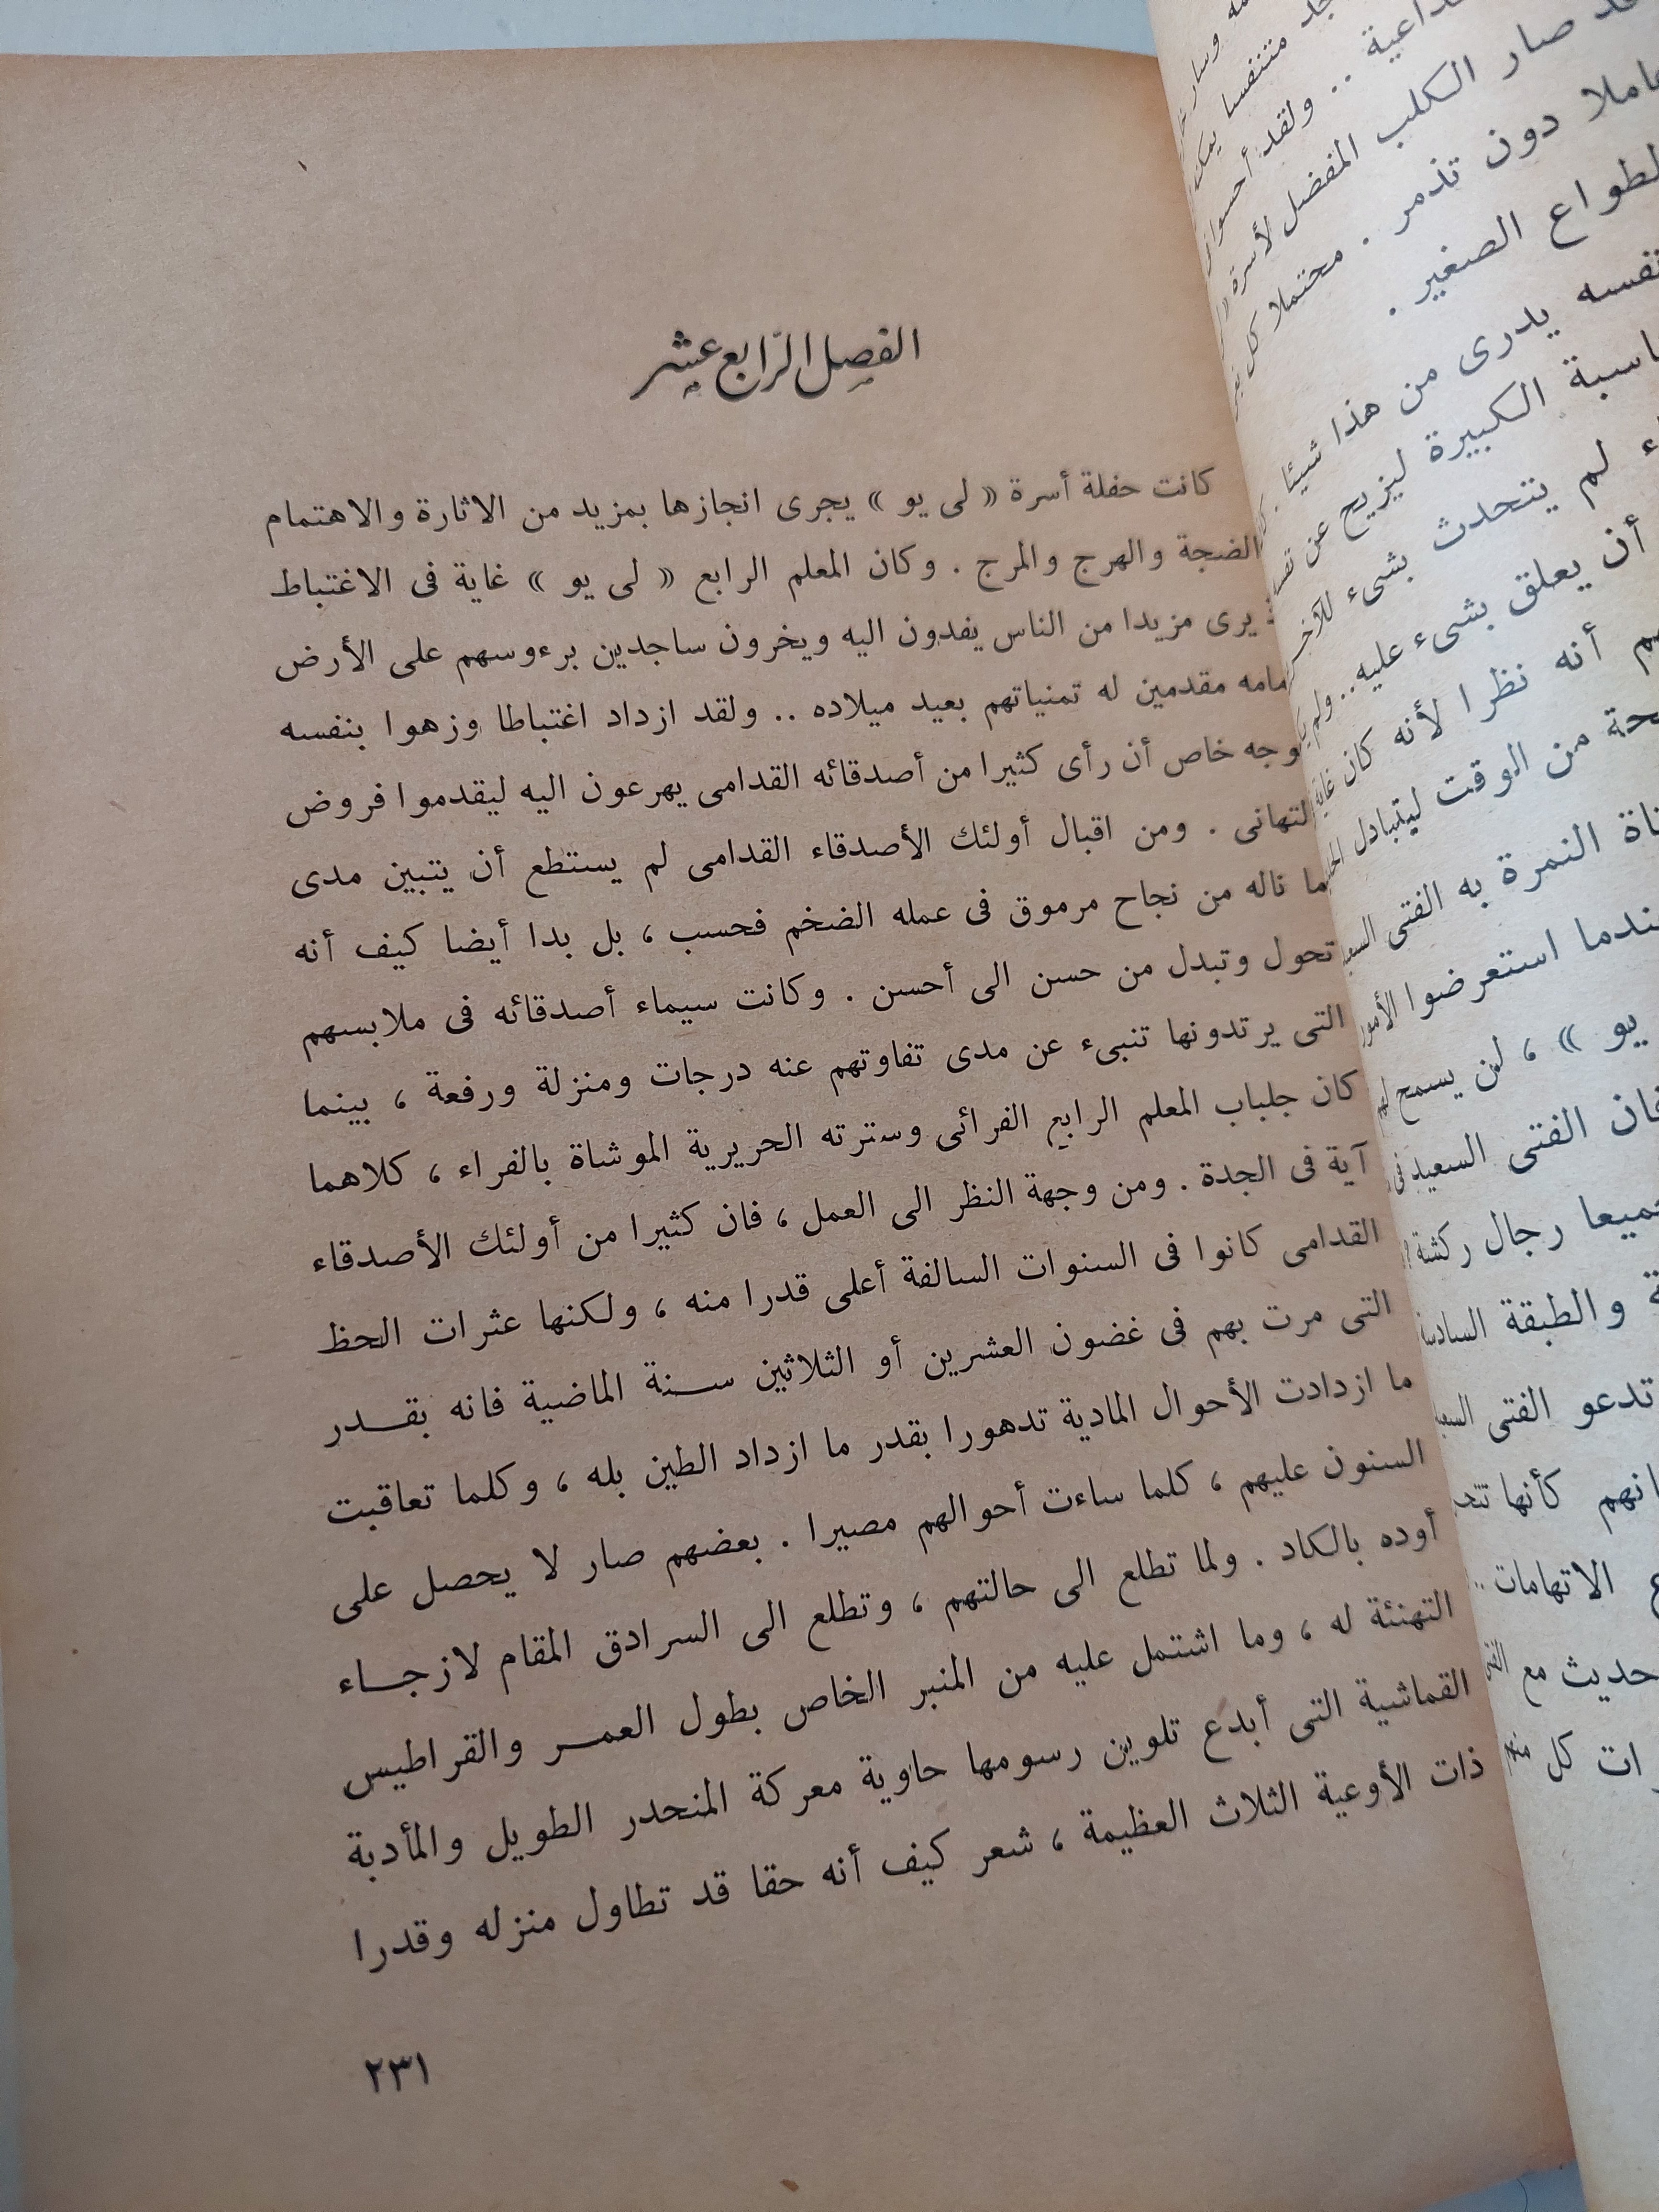 الفصل الرّابع عشر
كانت حفلة أسرة « لى يو » يجرى انجازها بمزيد من الاثارة والاهتمام
الضجة والهرج والمرج . وكان المعلم الرابع « لى يو » غاية فى الاغتباط
يرى مزيدا من الناس يفدون اليه ويخرون ساجدين برءوسهم على الأرض
مامه مقدمين له تمنياتهم بعيد ميلاده .. ولقد ازداد اغتباطا وزهوا بنفسه
وجه خاص أن رأى كثيرا من أصدقائه القدامى يهرعون اليه ليقدموا فروض
لتهانى . ومن اقبال أولئك الأصدقاء القدامى لم يستطع أن يتبين مدى
ما ناله من نجاح مرموق فى عمله الضخم فحسب ، بل بدا أيضا كيف أنه
تحول وتبدل من حسن الى أحسن . وكانت سيماء أصدقائه فى ملابسهم
التى يرتدونها تنبىء عن مدى تفاوتهم عنه درجات ومنزلة ورفعة ، بينما
كان جلباب المعلم الرابع الفرائى وسترته الحريرية الموشاة بالفراء ، كلاهما
آية فى الجدة . ومن وجهة النظر الى العمل ، فان كثيرا من أولئك الأصدقاء
القدامى كانوا فى السنوات السالفة أعلى قدرا منه ، ولكنها عثرات الحظ
التى مرت بهم فى غضون العشرين أو الثلاثين سنة الماضية فانه بقدر
ما ازدادت الأحوال المادية تدهورا بقدر ما ازداد الطين بله ، وكلما تعاقبت
السنون عليهم ، كلما ساءت أحوالهم مصيرا . بعضهم صار لا يحصل على
أوده بالكاد . ولما تطلع الى حالتهم ، وتطلع الى السرادق المقام لازجاء
التهنئة له ، وما اشتمل عليه من المنبر الخاص بطول العمر والقراطيس
القماشية التى أبدع تلوين رسومها حاوية معركة المنحدر الطويل والمأدبة
ذات الأوعية الثلاث العظيمة ، شعر كيف أنه حقا قد تطاول منزله وقدرا
٢٣١
صار الكلب المفضل لأسرة
دون تذمر . محتملا كل
الصغير .
نفسه يدرى من هذا شيئا .
الكبيرة ليزيح عن
لم يتحدث بشىء
أن يعلق بشىء عليه ..
أنه نظرا لأنه كان
من الوقت ليتبادل
النمرة به الفتى
استعرضوا الأمور
يو » ، لن يسمح
الفتى السعيد
رجال ركشة
والطبقة السادسة
تدعو الفتى
كأنها
الاتهامات ..
مع
كل منهم